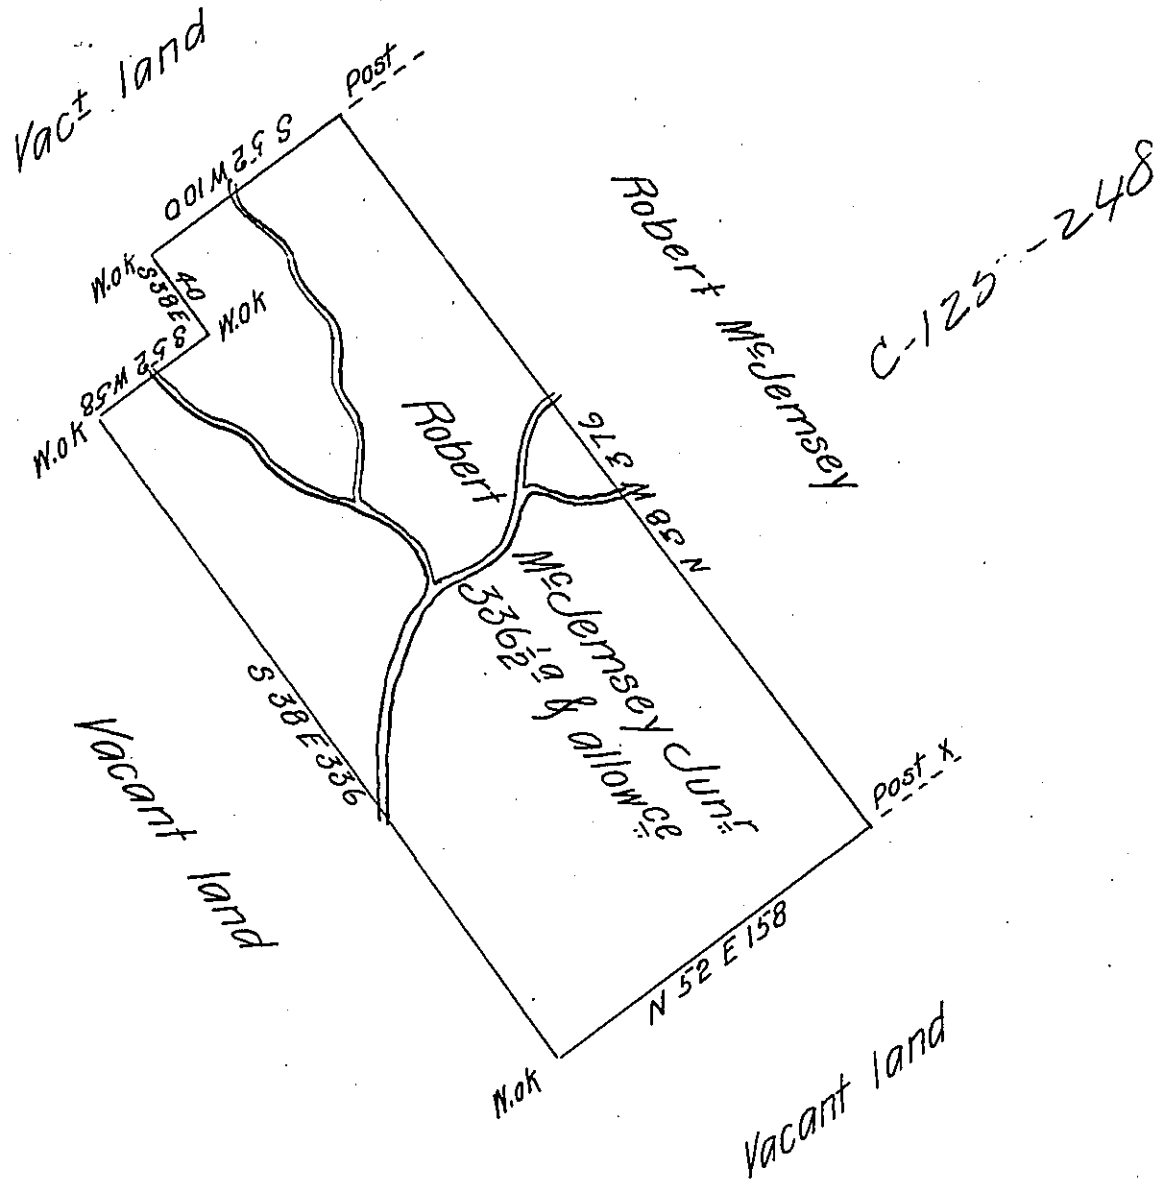 Vact land
Post
S 52 W 100
W.ok
S 38 E
40
W.ok
S 52 W 58
W.ok
Robert McJemsey
C-125---248
N 58 W 376
Robert
McJemsey Junr
336 1/2 a & allowce
S 38 E 336
Vacant land
Post X
N 52 E 158
W.ok
Vacant land